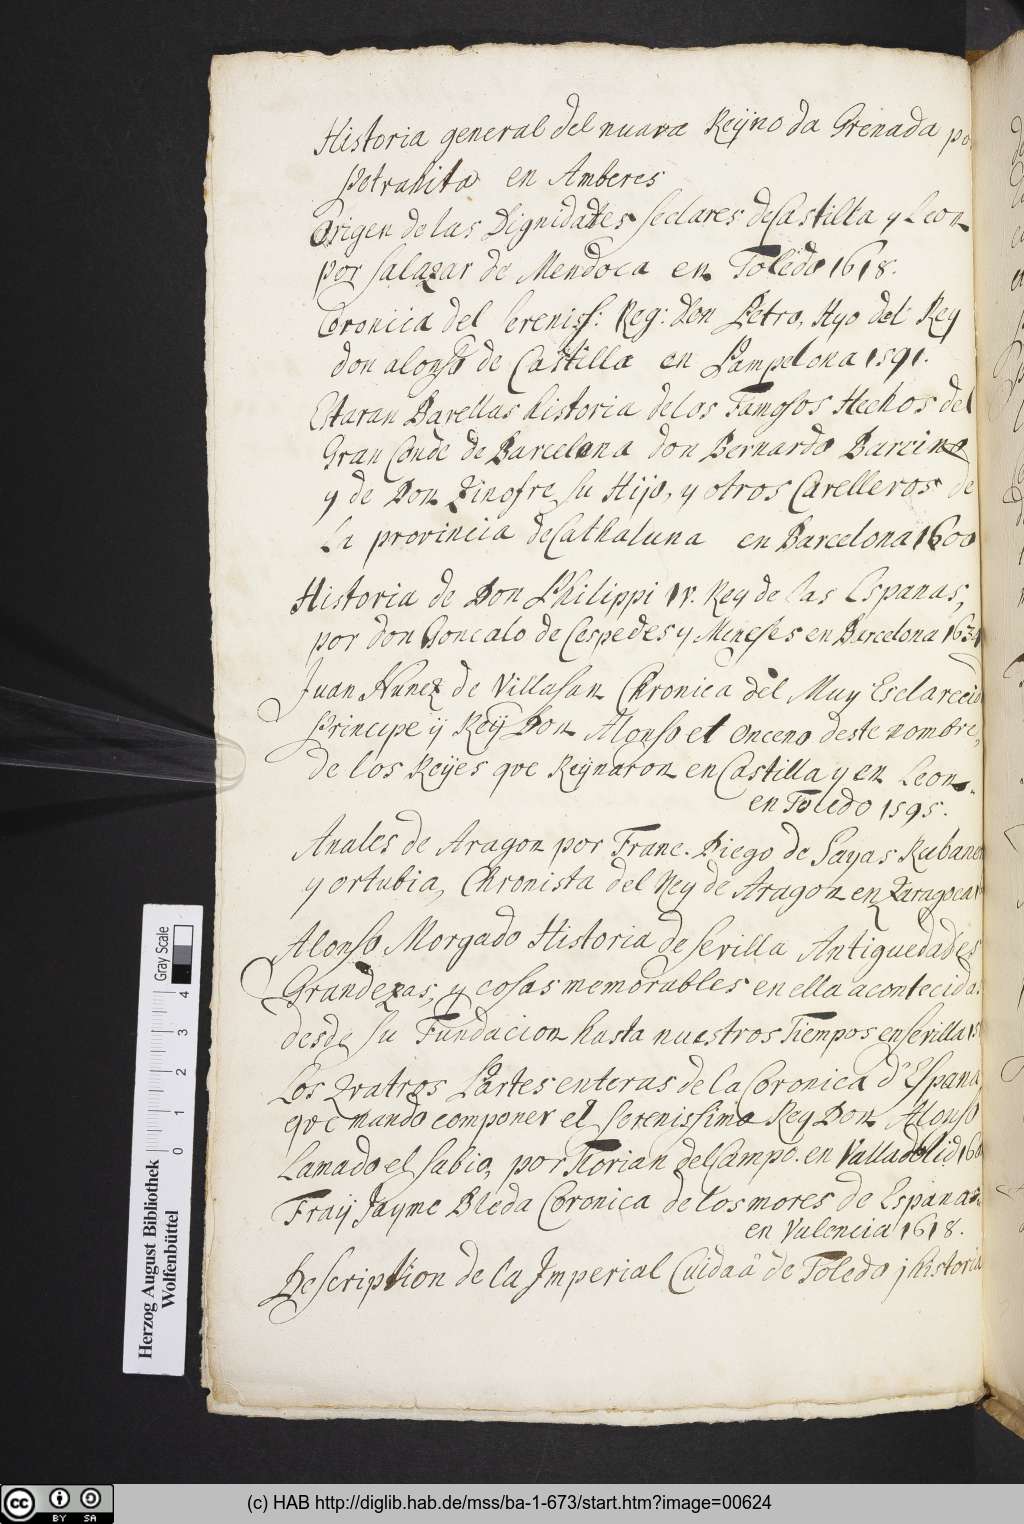 Historia general del nuava Reÿno da Grenada po
Petrahita en Amberes
Origen de las Dignidades seclares de Castilla y Leon
por salazar de Mendoca en Toledo 1618.
Coronica del sereniss: Reg: Don Petro, Hyo del Rey
don alonso de Castilla en Pampelona 1591.
Estaran Barellas historia de los Famosos Hechos del
Gran Conde de Barcelona don Bernardo Barcino
y de Don Zinofre su Hijo, y otros Carelleros de
la provincia de Cathaluna en Barcelona 1600
Historia de Don Philippi IV. Rey de las Espanas,
por don Goncalo de Cespedes y Meneses en Barcelona 1634
Juan Nunez de Villasan Chronica del Muy Esclarecid
Principe ÿ Reÿ Don Alonso el onceno deste nombre,
de los Reÿes qve Reÿnaron en Castilla y en Leon.
en Toledo 1595.
Anales de Aragon por Franc. Diego de Sayas Rabane
y ortubia, Chronista del Rey de Aragon en Zaragoca
Alonso Morgado Historia de sevilla Antiguedades
Grandezas, y cosas memorables en ella acontecidas
desde su Fundacion hasta nuestros Tiempos en sevilla 15
Los Qvatros Partes enteras de la Coronica d' Espana
qve mando componer el serenissimo Rey Don Alonso
Lamado el sabio, por Florian del Campo. en Valladolid 160
Fraÿ Jayme Bleda Coronica de los mores de Espanas.
en Valencia 1618.
Description de la Imperial Cuidaå de Toledo j historia
Gray Scale
0 1 2 3 4
Herzog August Bibliothek
Wolfenbüttel
cc BY SA
(c) HAB http://diglib.hab.de/mss/ba-1-673/start.htm?image=00624